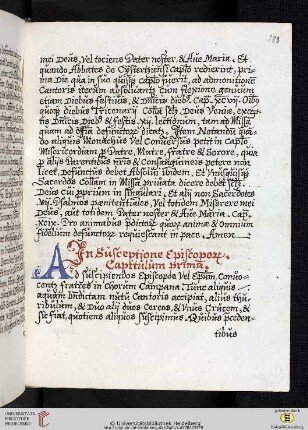 mei Deus, Vel tociens Pater noster, & Aue Maria. Et
quando Abbates de Cystertiensi Capto redierint, pri-
ma Die qua in suo quisque capto fuerit, ad admonitionem
Cantoris iterum absoluantur cum flexione genuum
etiam Diebus festiuis, & Dnicis dieb9. Cap. xcvij. Oibus
quoque diebus Tricenarij Collā scz. Deus Veniae, excep-
tis Dnicis Dieb9 & festis. xij. lectionum, tam ad Missā
quam ad officiū defunctorum dicatur. Item Notandū quan-
do aliquis Monachus Vel Conuersus petit in Capto
Misericordiam pro Patre, Matre, fratre & Sorore, quia
pro alijs Parentibus suis & Consanguineis petere non
licet, Defunctus debet Absolui ibidem. Et Vnusquisque
Sacerdos Collam in Missa priuata dicere debet scz.
Deus cui proprium in singulari. Et alij non Sacerdotes
vij. Psalmos poenitentiales, Vel totidem Miserere mei
Deus, aut totidem Pater noster & Aue Maria. Cap.
xcix. Pro animabus pdictorum quorum animae & omnium
fidelium defunctorum requiescant in pace. Amen.
In Susceptione Episcoporum
Capitulum prima.
Ad suscipiendos Episcopos Vel Epium Conuo-
centur fratres in chorum Campana: Tunc aliquis
aquam bndictam nutu Cantoris accipiat, alius thu-
ribulum, & Duo alij duos Cereos, & Vnus Crucem, &
sic fiat, quotiens aliquos suscipimus. Quibus prceden-
tibus
UNIVERSITÄTS-
BIBLIOTHEK
HEIDELBERG
© Universitätsbibliothek Heidelberg